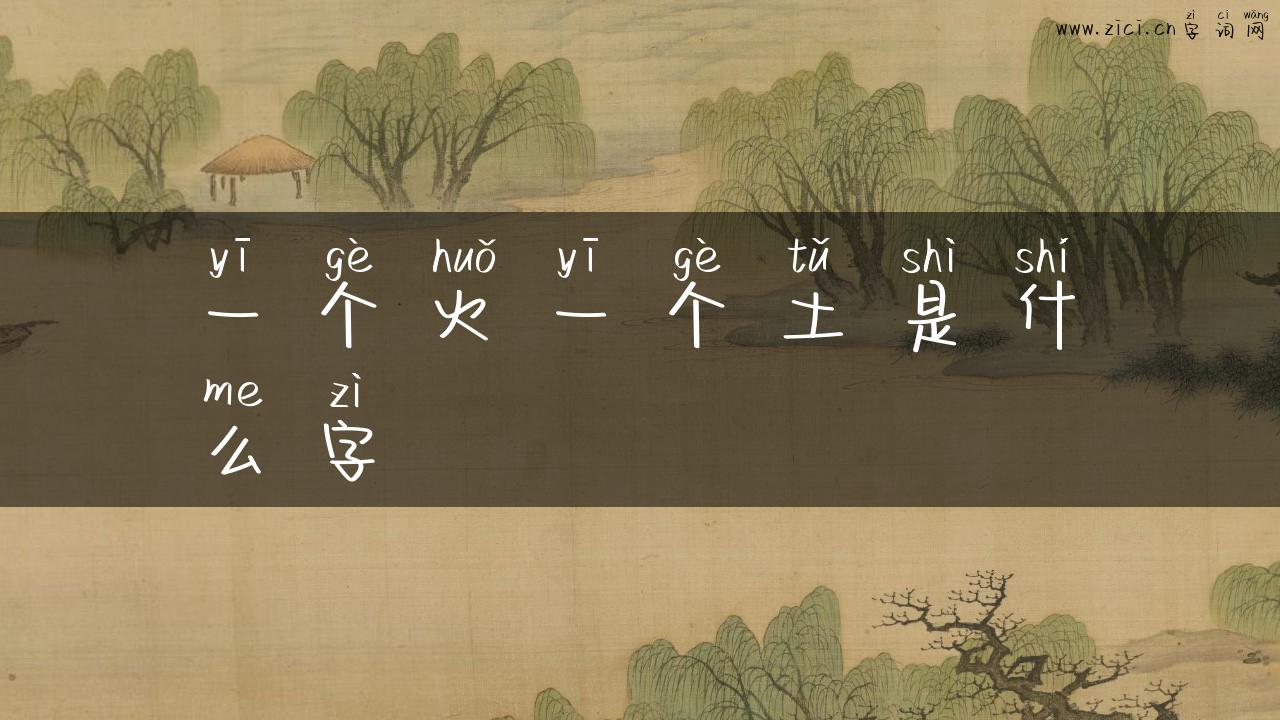 zì cí wǎng
www.zici.cn 字词网
yī gè huǒ yī gè tǔ shì shí
一个火一个土是什
me zì
么字